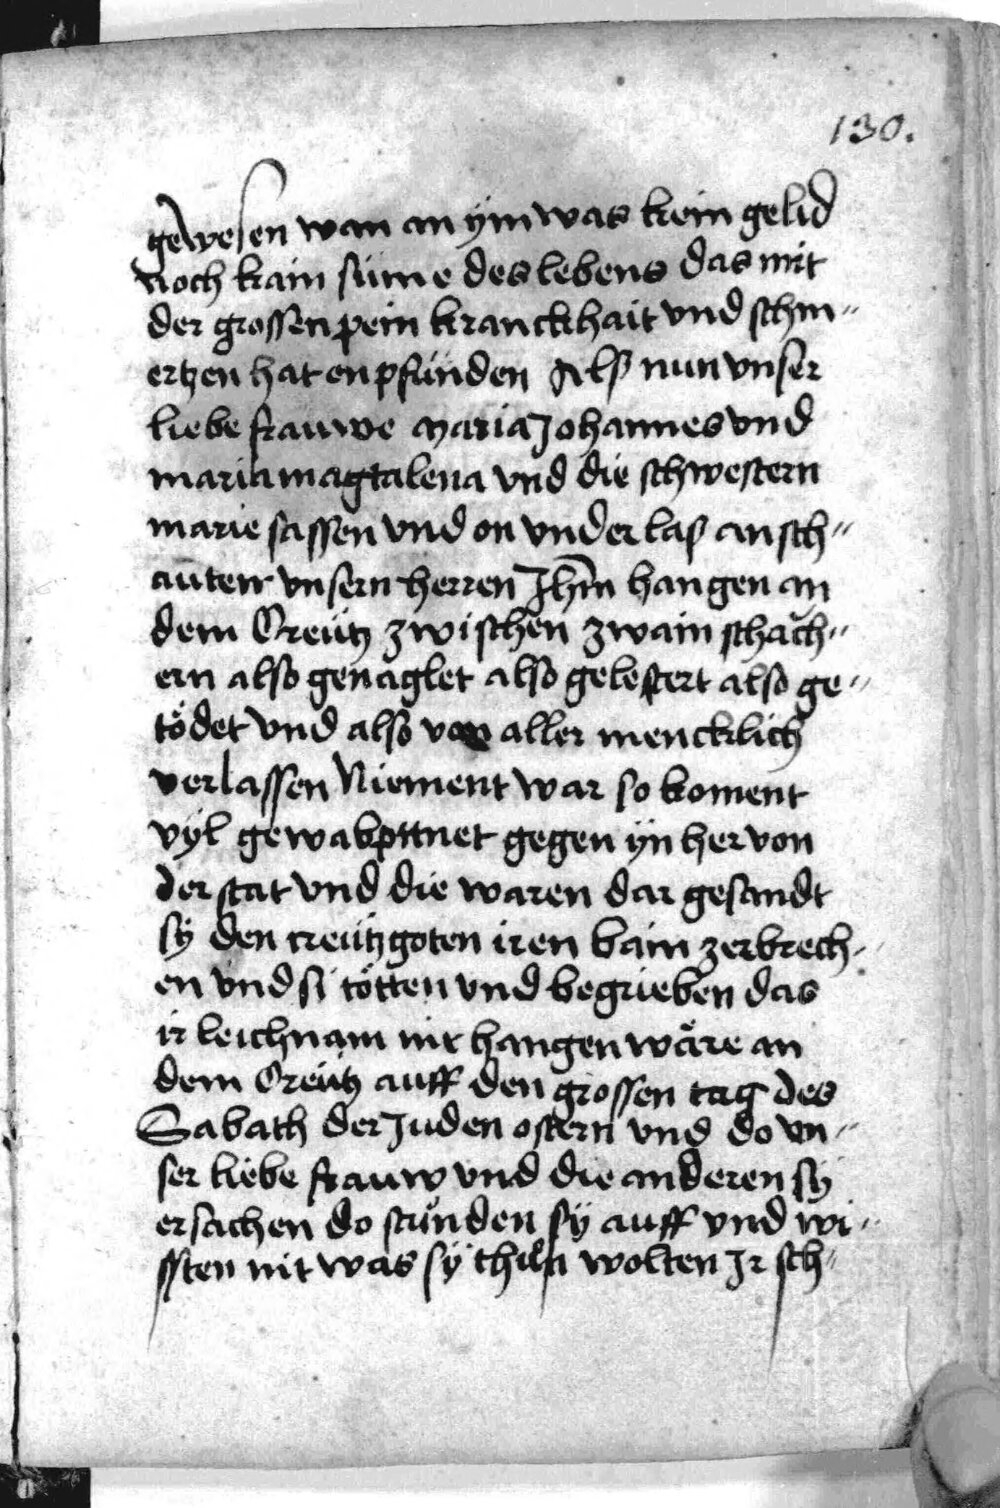 130.
gewesen wan an ÿm was kein gelid
noch kain sinne des lebens das mit
der grossen pein kranckhait vnd schm¬
ertzen hat enpfünden Als nun vnser
liebe frauwe maria Johannes vnd
maria magtalena vnd die schwestern
marie sassen vnd on vnderlas an sch¬
auten vnsern herren Jhm̄ hangen an
dem Creütz zwischen zwain schäch¬
ern also genaglet also gelestert also ge¬
tödet vnd also von aller mencklich
verlassen Niement war so koment
vÿl gewabpttnet gegen ÿn her von
der stat vnd die waren dar gesandt
sÿ den creützgoten iren bain zerbrech¬
en vnd si tötten vnd begrieben das
ir leichnam nit hangen wäre an
dem Creütz auff den grossen tag des
Sabath der Juden ostern vnd do vn¬
ser liebe frauw vnd die anderen sÿ
ersachen do stünden sÿ auff vnd wi¬
ssten nit was sÿ thün wolten Ir sch¬